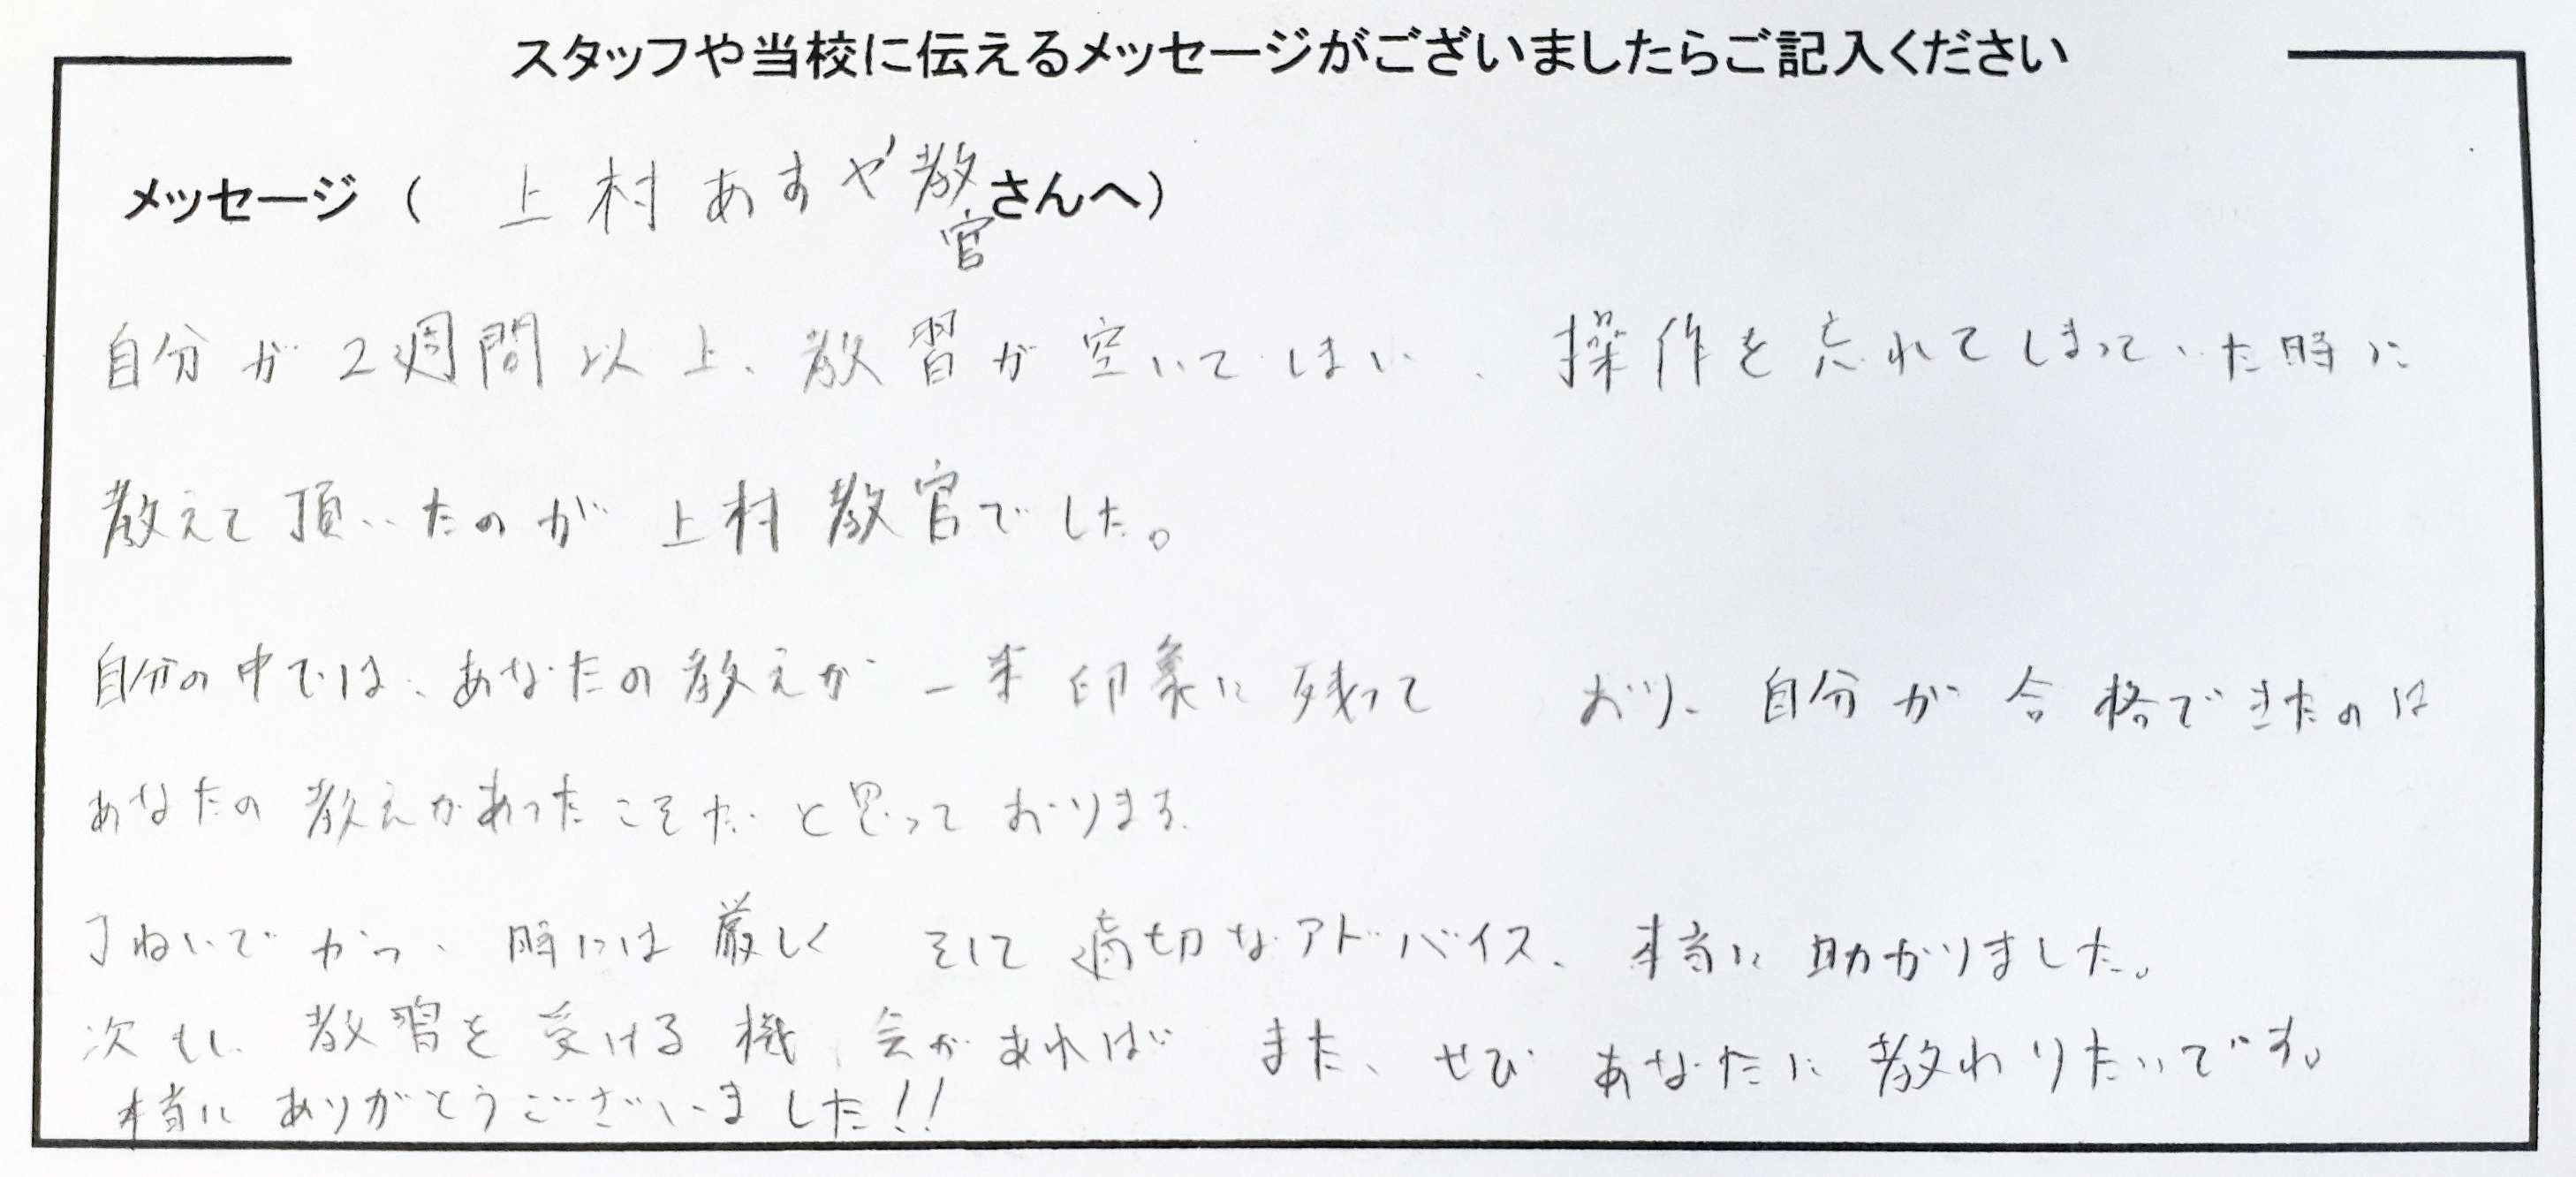 スタッフや当校に伝えるメッセージがございましたらご記入ください
メッセージ（ 上村あすや教官さんへ）
自分が2週間以上、教習が空いてしまい、操作を忘れてしまっていた時に
教えて頂いたのが上村教官でした。
自分の中では、あなたの教えが一番印象に残って おり、自分が合格できたのは
あなたの教えがあったこそだと思っております。
丁ねいでかつ、時には厳しく そして適切なアドバイス、本当に助かりました。
次もし、教習を受ける機会があれば また、ぜひあなたに教わりたいです。
本当にありがとうございました!!